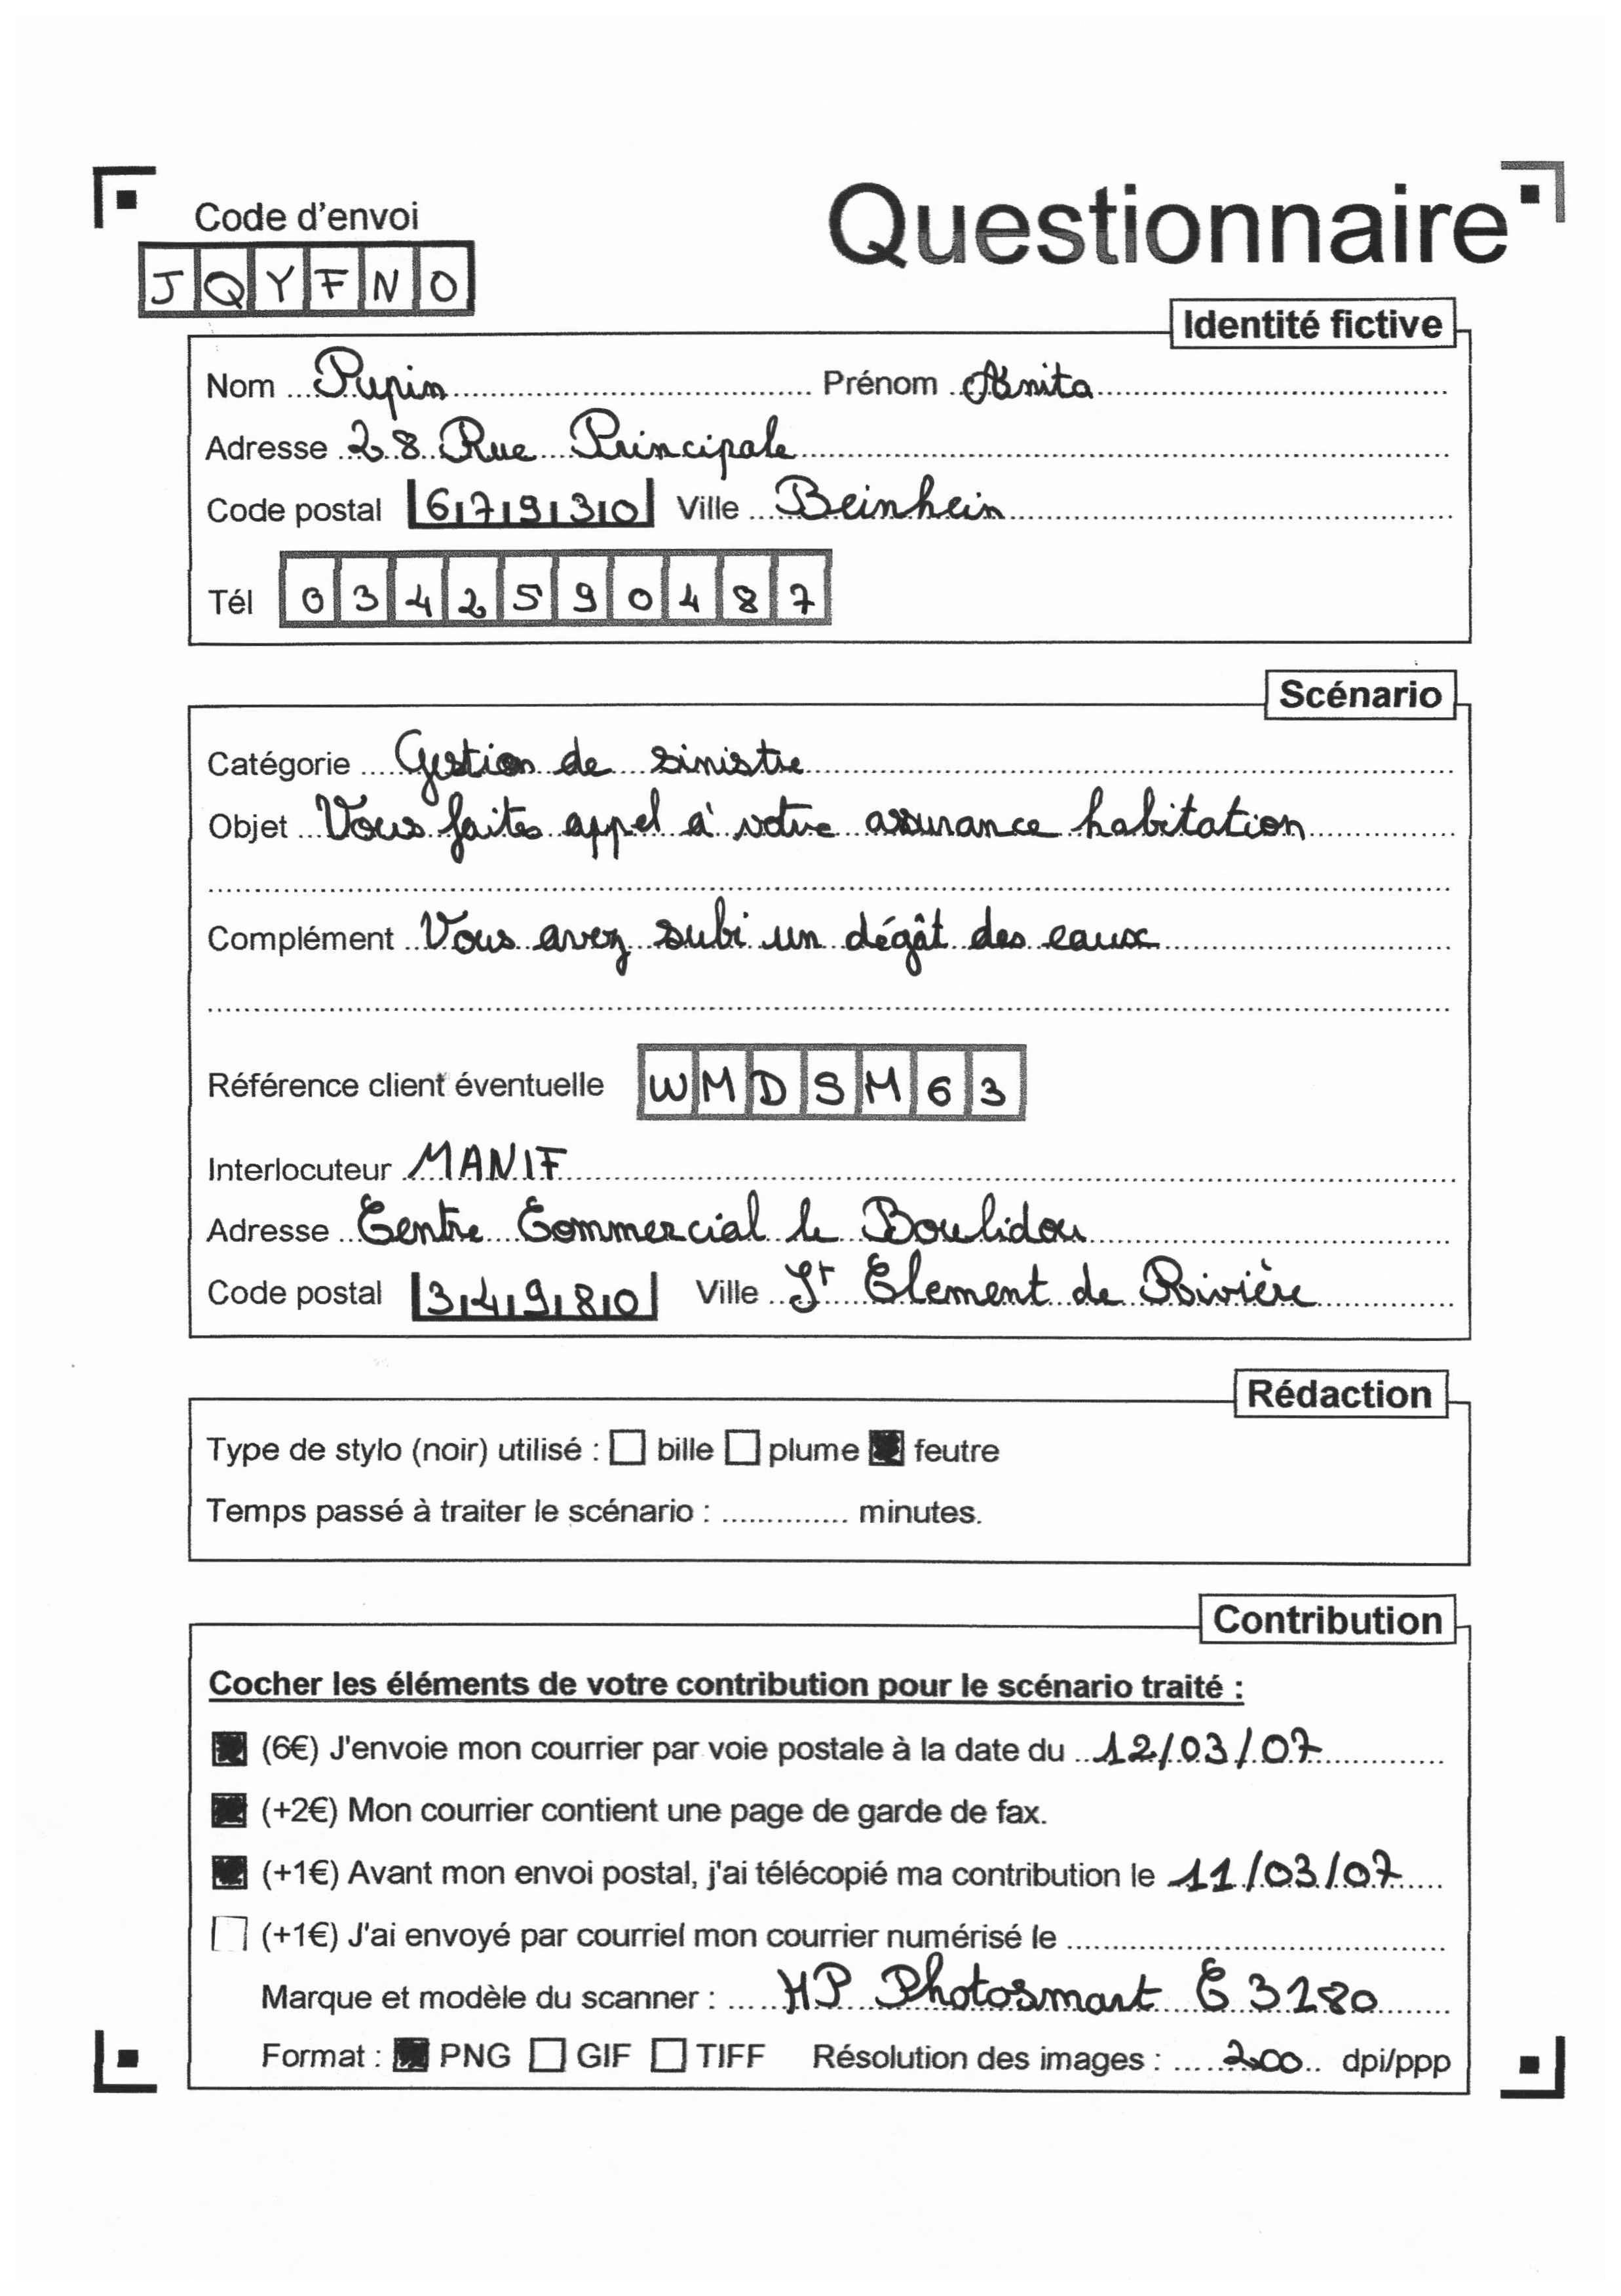 Code d'envoi
Questionnaire
JQYFNO
Identité fictive
Nom Pupin Prénom Anita
Adresse 28 Rue Principale
Code postal 67930 Ville Beinhein
Tél 0342590487
Scénario
Catégorie Gestion de sinistre
Objet Vous faites appel à votre assurance habitation
Complément Vous avez subi un dégât des eaux
Référence client éventuelle WMDSM63
Interlocuteur MANIF
Adresse Centre Commercial le Boulidou
Code postal 34980 Ville St Clement de Rivière
Rédaction
Type de stylo (noir) utilisé : bille plume feutre
Temps passé à traiter le scénario : .............. minutes.
Contribution
Cocher les éléments de votre contribution pour le scénario traité :
(6€) J'envoie mon courrier par voie postale à la date du 12/03/07
(+2€) Mon courrier contient une page de garde de fax.
(+1€) Avant mon envoi postal, j'ai télécopié ma contribution le 11/03/07
(+1€) J'ai envoyé par courriel mon courrier numérisé le
Marque et modèle du scanner : HP Photosmart C 3180
Format : PNG GIF TIFF Résolution des images : 200 dpi/ppp